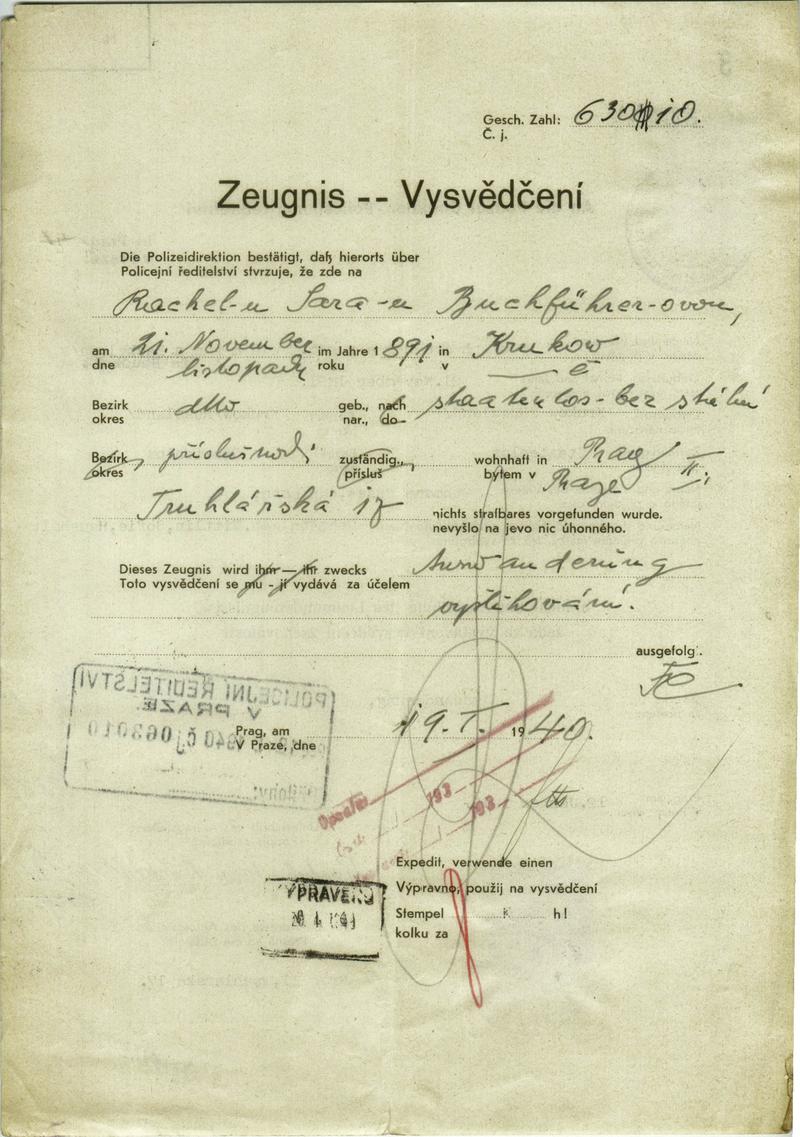 Gesch. Zahl: 630 10.
Č. j.
Zeugnis -- Vysvědčení
Die Polizeidirektion bestätigt, daß hierorts über
Policejní ředitelství stvrzuje, že zde na
Rachel-u Sara-u Buchführer-ovou,
am 21. November im Jahre 1891 in Krukow
dne listopadu roku v — ě
Bezirk dtto geb., nach staatenlos - bez státní
okres nar., do
Bezirk, příslušnosti zuständig., wohnhaft in Prag II.,
okres přísluš bytem v Praze
Truhlářská 17 nichts strafbares vorgefunden wurde.
nevyšlo na jevo nic úhonného.
Dieses Zeugnis wird ihm — ihr zwecks Auswanderung
Toto vysvědčení se mu - jí vydává za účelem
vystěhování.
ausgefolg.
POLICEJNÍ ŘEDITELSTVÍ
V PRAZE.
1940 čj 063010
Prag, am 19. I. 1940.
V Praze, dne
Opsal:
193
193
Expedit, verwende einen
Výpravno, použij na vysvědčení
Stempel K h!
kolku za
VYPRAVENO